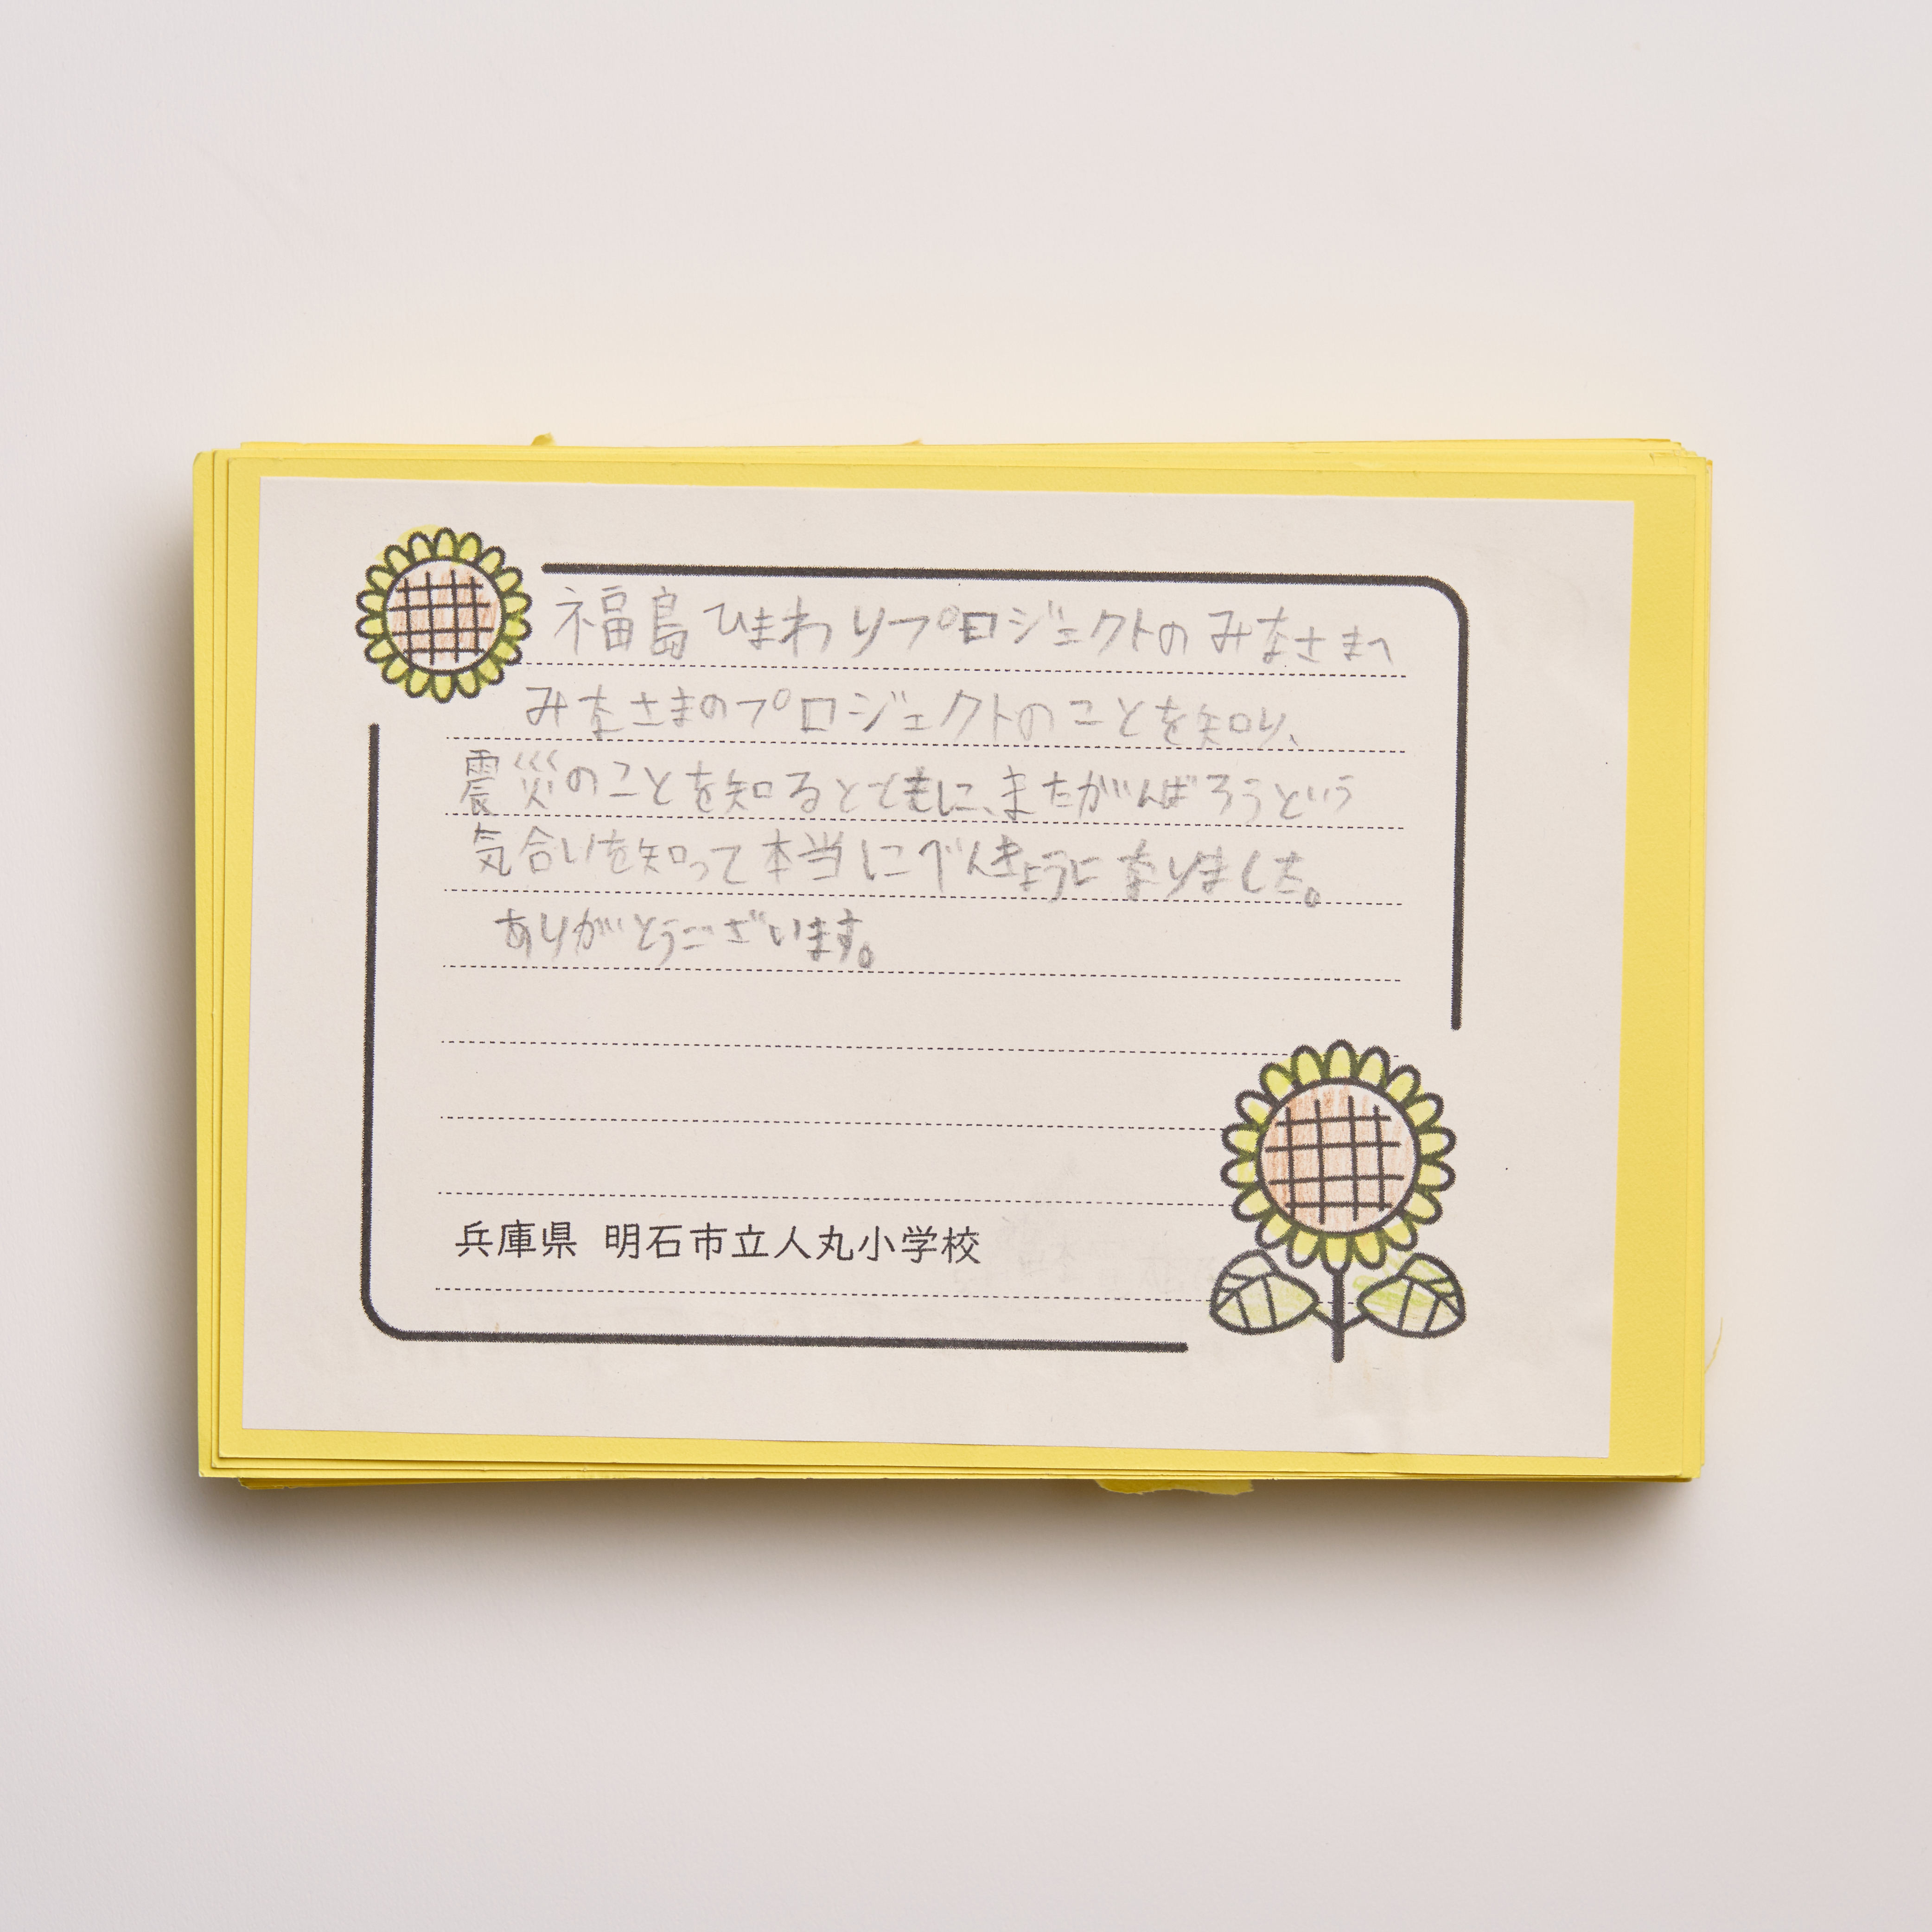 福島ひまわりプロジェクトのみなさまへ
みなさまのプロジェクトのことを知り、
震災のことを知るとともに、またがんばろうという
気合いを知って本当にべんきょうになりました。
ありがとうございます。
兵庫県 明石市立人丸小学校